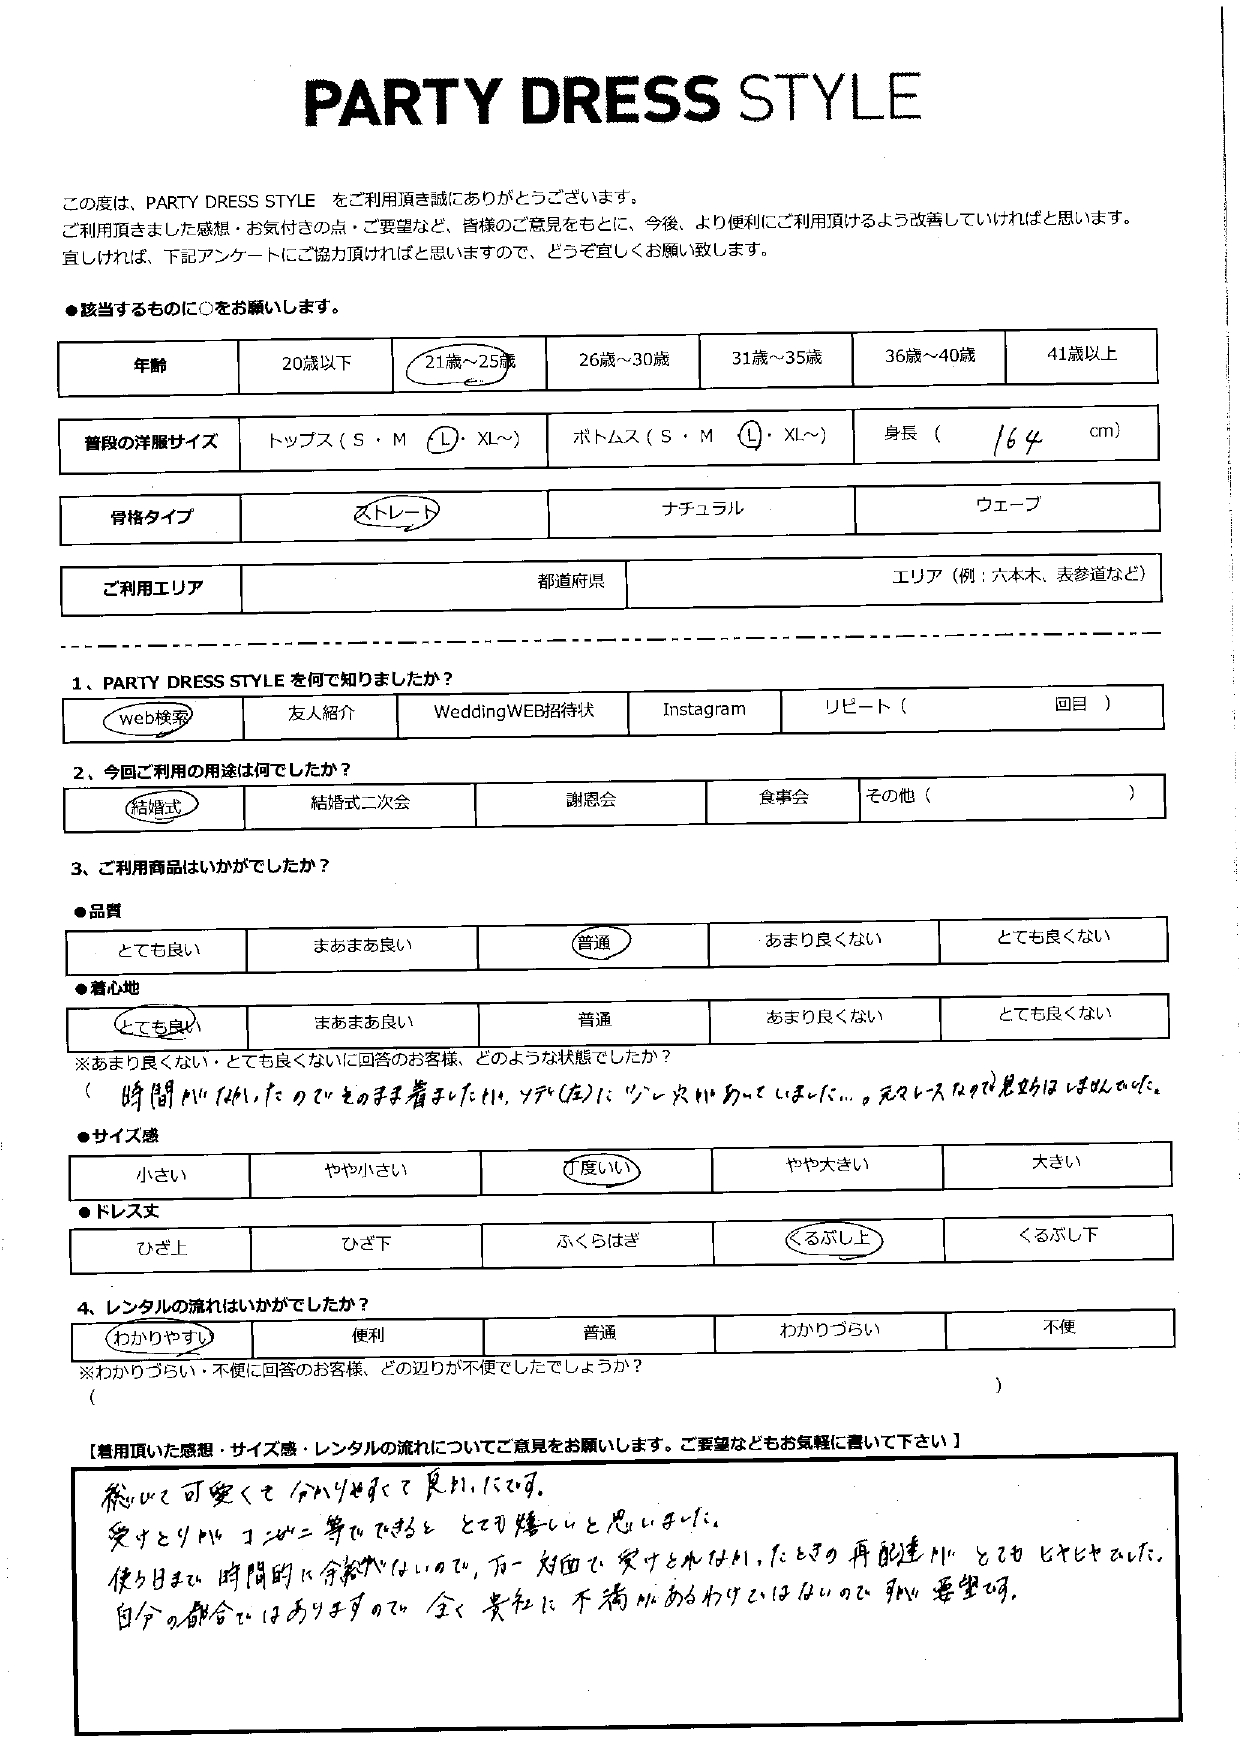 PARTY DRESS STYLE
この度は、PARTY DRESS STYLE　をご利用頂き誠にありがとうございます。
ご利用頂きました感想・お気付きの点・ご要望など、皆様のご意見をもとに、今後、より便利にご利用頂けるよう改善していければと思います。
宜しければ、下記アンケートにご協力頂ければと思いますので、どうぞ宜しくお願い致します。
●該当するものに○をお願いします。
年齢 20歳以下 21歳～25歳 26歳～30歳 31歳～35歳 36歳～40歳 41歳以上
普段の洋服サイズ トップス ( S ・ M ・ L ・ XL～) ボトムス ( S ・ M ・ L ・ XL～) 身長 ( 164 cm)
骨格タイプ ストレート ナチュラル ウェーブ
ご利用エリア 都道府県 エリア（例：六本木、表参道など）
1、PARTY DRESS STYLE を何で知りましたか？
web検索 友人紹介 WeddingWEB招待状 Instagram リピート（ 回目 ）
2、今回ご利用の用途は何でしたか？
結婚式 結婚式二次会 謝恩会 食事会 その他（ ）
3、ご利用商品はいかがでしたか？
●品質
とても良い まあまあ良い 普通 あまり良くない とても良くない
●着心地
とても良い まあまあ良い 普通 あまり良くない とても良くない
※あまり良くない・とても良くないに回答のお客様、どのような状態でしたか？
( 時間がなかったのでそのまま着ましたが、ソデ(左)に少し穴があいていました…。元々レースなので見立ちはしませんでした。
●サイズ感
小さい やや小さい 丁度いい やや大きい 大きい
●ドレス丈
ひざ上 ひざ下 ふくらはぎ くるぶし上 くるぶし下
4、レンタルの流れはいかがでしたか？
わかりやすい 便利 普通 わかりづらい 不便
※わかりづらい・不便に回答のお客様、どの辺りが不便でしたでしょうか？
( )
【着用頂いた感想・サイズ感・レンタルの流れについてご意見をお願いします。ご要望などもお気軽に書いて下さい】
総じて可愛くて分かりやすくて良かったです。
受けとりがコンビニ等でできるととても嬉しいと思いました。
使う日まで時間的に余裕がないので、万一対面で受けとれなかったときの再配達がとてもヒヤヒヤでした。
自分の都合ではありますので全く貴社に不満があるわけではないのですが要望です。